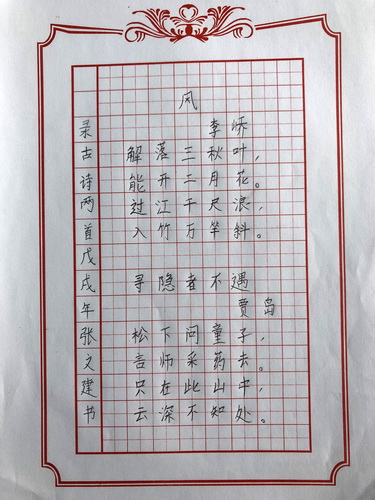 风
李峤
解落三秋叶，
能开二月花。
过江千尺浪，
入竹万竿斜。
寻隐者不遇
贾岛
松下问童子，
言师采药去。
只在此山中，
云深不知处。
录古诗两首戊戌年张文建书